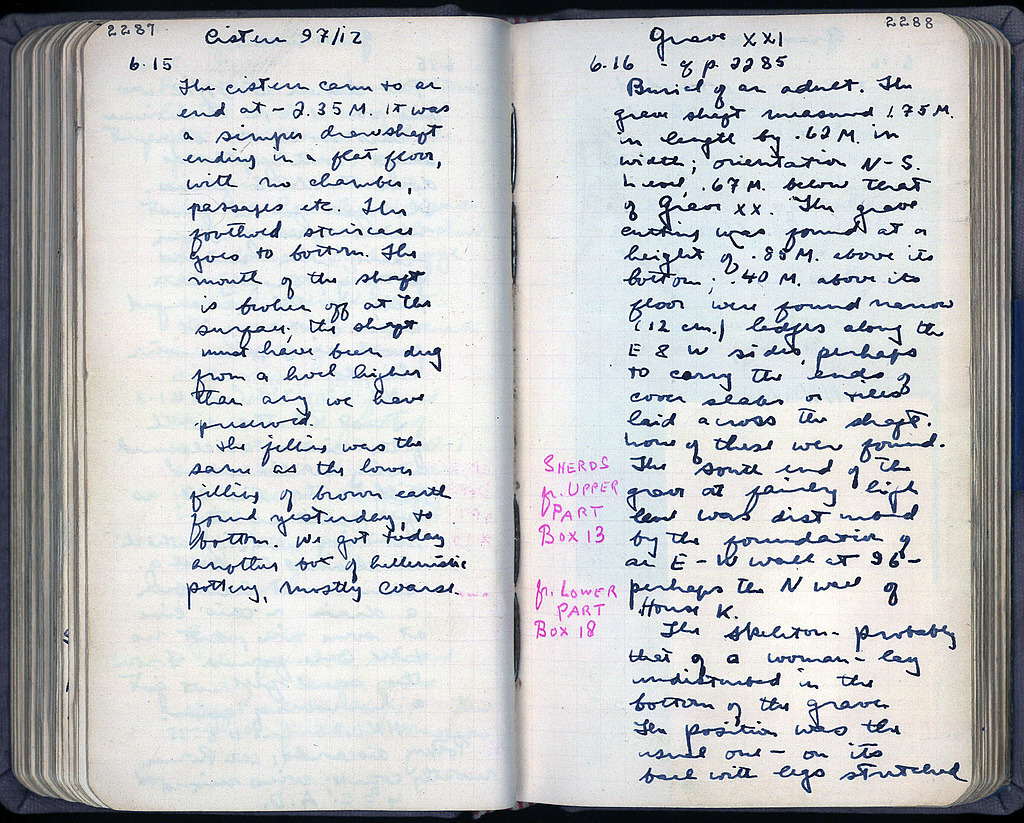 2287
Cistern 97/12
6.15
The cistern came to an
end at – 2.35 M. It was
a simple drawshaft
ending in a flat floor,
with no chamber,
passages etc. The
foothold staircase
goes to bottom. The
mouth of the shaft
is broken off at the
surface; the shaft
must have been dug
from a level higher
than any we have
preserved.
The filling was the
same as the lower
filling of brown earth
found yesterday, to
bottom. We got today
another box of hellenistic
pottery, mostly coarse.
2288
Grave XXI
6.16 – cf p. 2285
Burial of an adult. The
grave shaft measured 1.75 M.
in length by .62 M. in
width; orientation N–S.
Level, .67 M. below that
of Grave XX. The grave
cutting was found at a
height of .85 M. above its
bottom; .40 M. above its
floor were found narrow
(12 cm.) ledges along the
E & W sides, perhaps
to carry the ends of
cover slabs or tiles
laid across the shaft.
None of these were found.
The south end of the
grave at fairly high
level was disturbed
by the foundation of
an E–W wall at 96–
perhaps the N wall of
House K.
The skeleton – probably
that of a woman – lay
undisturbed in the
bottom of the grave.
The position was the
usual one – on its
back with legs stretched
SHERDS
fr. UPPER
PART
Box 13
fr. LOWER
PART
Box 18